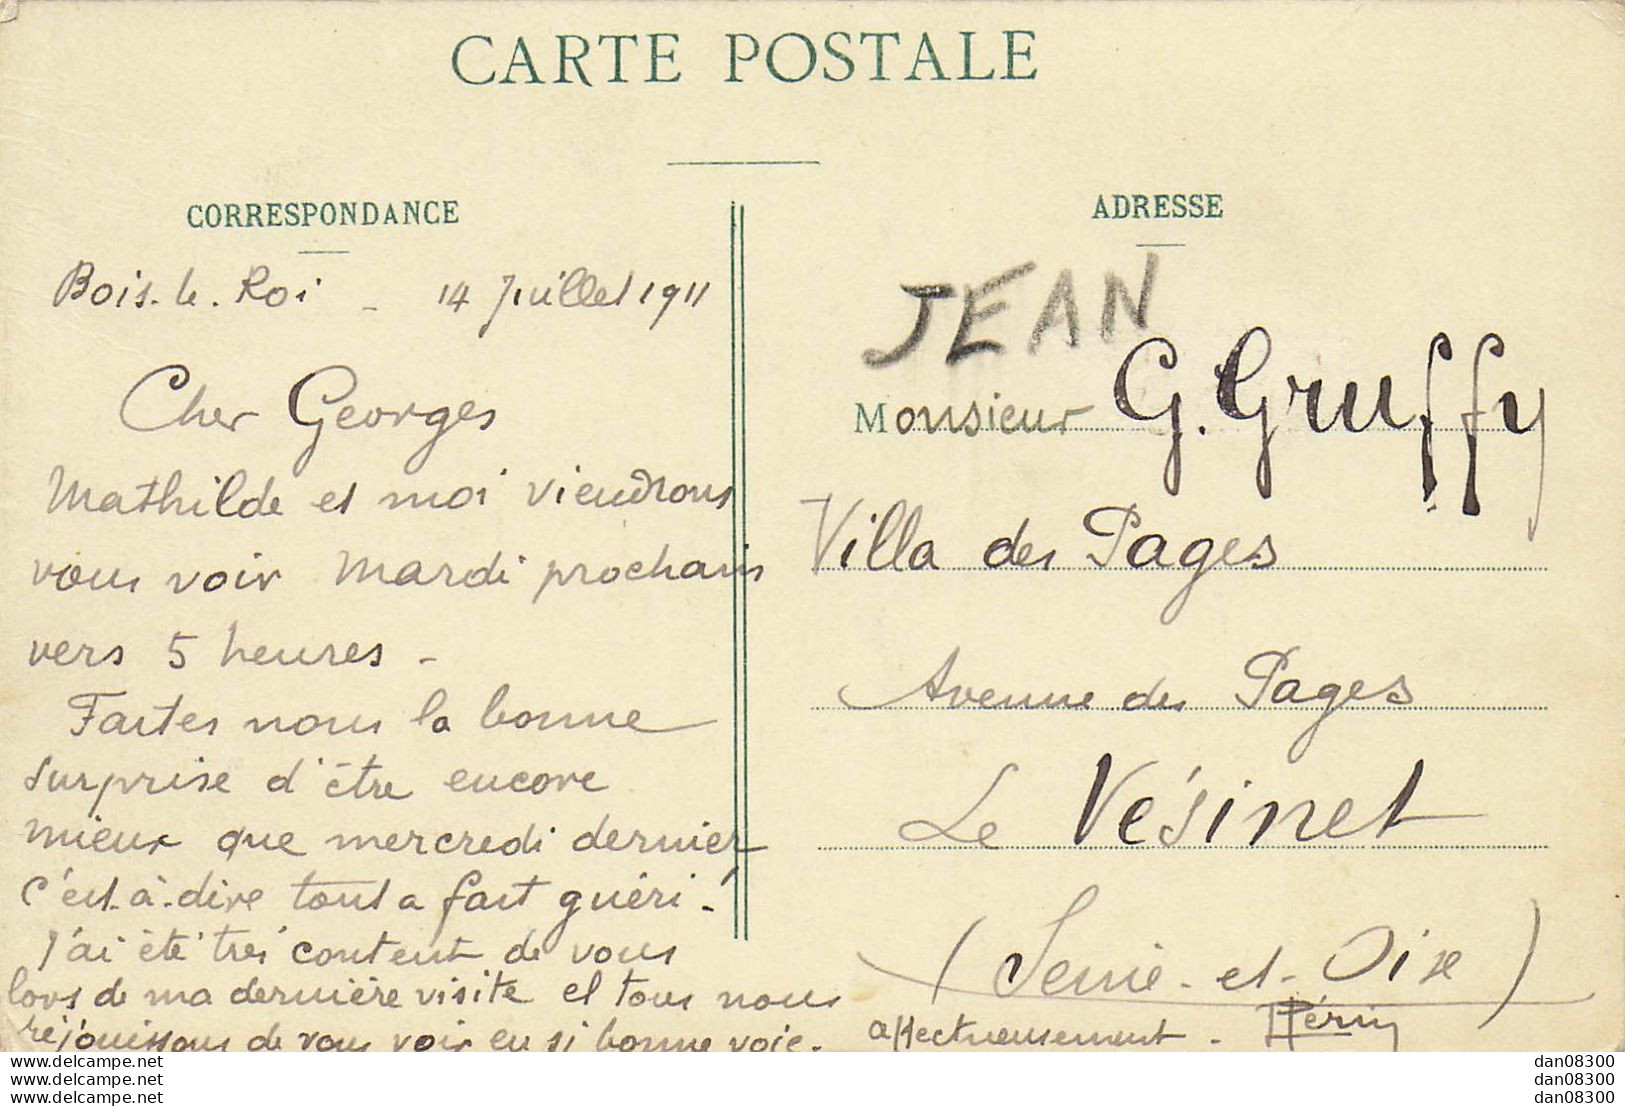 CARTE POSTALE
CORRESPONDANCE
Bois-le-Roi - 14 Juillet 1911
Cher Georges
Mathilde et moi viendrons
vous voir mardi prochain
vers 5 heures -
Faites nous la bonne
surprise d'être encore
mieux que mercredi dernier
c'est-à-dire tout a fait guéri !
J'ai été très content de vous
lors de ma dernière visite et tous nous
réjouissons de vous voir en si bonne voie.
affectueusement.
ADRESSE
JEAN
Monsieur G. Gruffy
Villa des Pages
Avenue des Pages
Le Vésinet
(Seine-et-Oise)
www.delcampe.net
www.delcampe.net
www.delcampe.net
dan08300
dan08300
dan08300